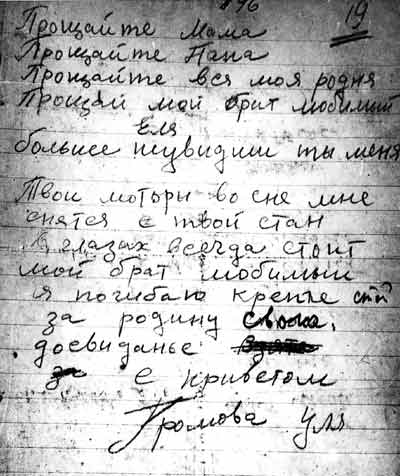 96
19
Прощайте Мама
Прощайте Папа
Прощайте вся моя родня
Прощай мой брат любимый
Еля
больше неувидиш ты меня
Твои моторы во сне мне
снятся Е твой стан
в глазах всегда стоит
мой брат любимый
я погибаю крепче стой
за родину свою.
досвиданье
за Е приветом
Громова Уля